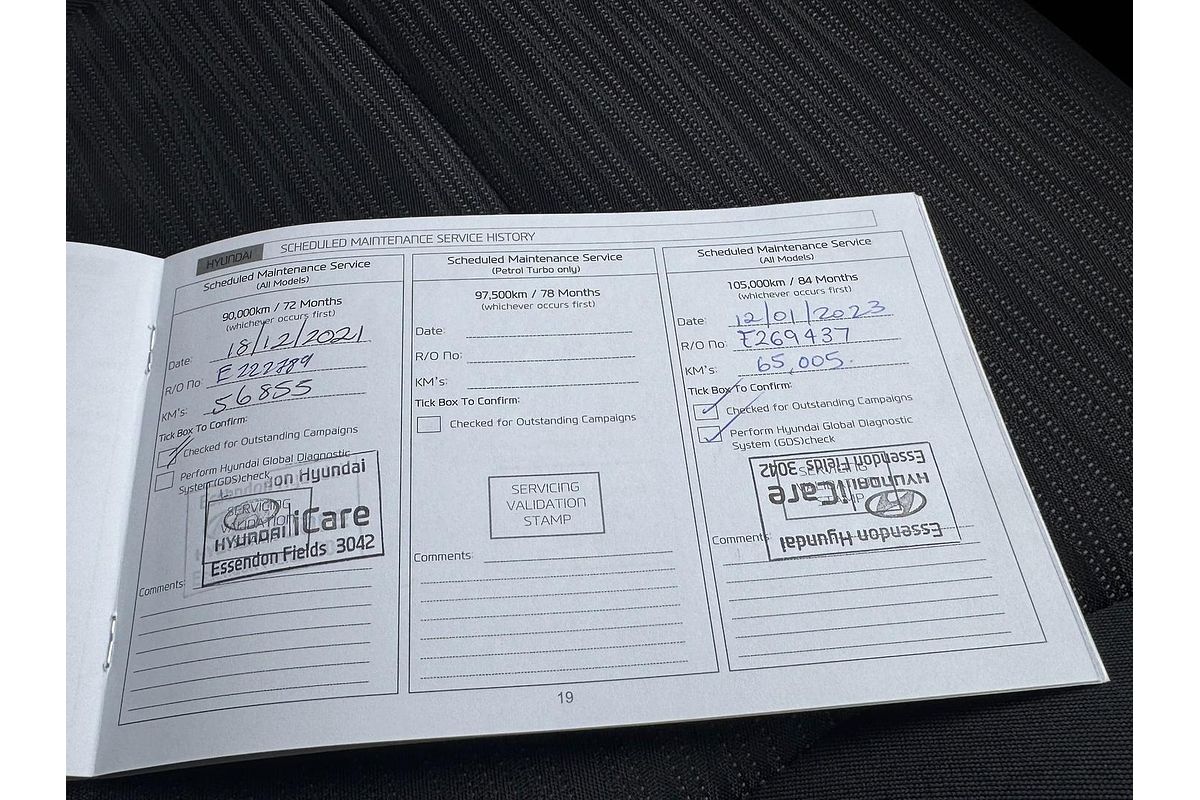 HYUNDAI
SCHEDULED MAINTENANCE SERVICE HISTORY
Scheduled Maintenance Service
(All Models)
90,000km / 72 Months
(whichever occurs first)
Date: 18/12/2021
R/O No: E222789
KM's: 56855
Tick Box To Confirm:
Checked for Outstanding Campaigns
Perform Hyundai Global Diagnostic
System (GDS)check
SERVICING
VALIDATION
Hyundai
HYUNDAI iCare
Essendon Fields 3042
Comments:
Scheduled Maintenance Service
(Petrol Turbo only)
97,500km / 78 Months
(whichever occurs first)
Date:
R/O No:
KM's:
Tick Box To Confirm:
Checked for Outstanding Campaigns
SERVICING
VALIDATION
STAMP
Comments:
Scheduled Maintenance Service
(All Models)
105,000km / 84 Months
(whichever occurs first)
Date: 12/01/2023
R/O No: E269437
KM's: 65,005
Tick Box To Confirm:
Checked for Outstanding Campaigns
Perform Hyundai Global Diagnostic
System (GDS)check
Essendon Hyundai
HYUNDAI iCare
Essendon Fields 3042
Comments:
19